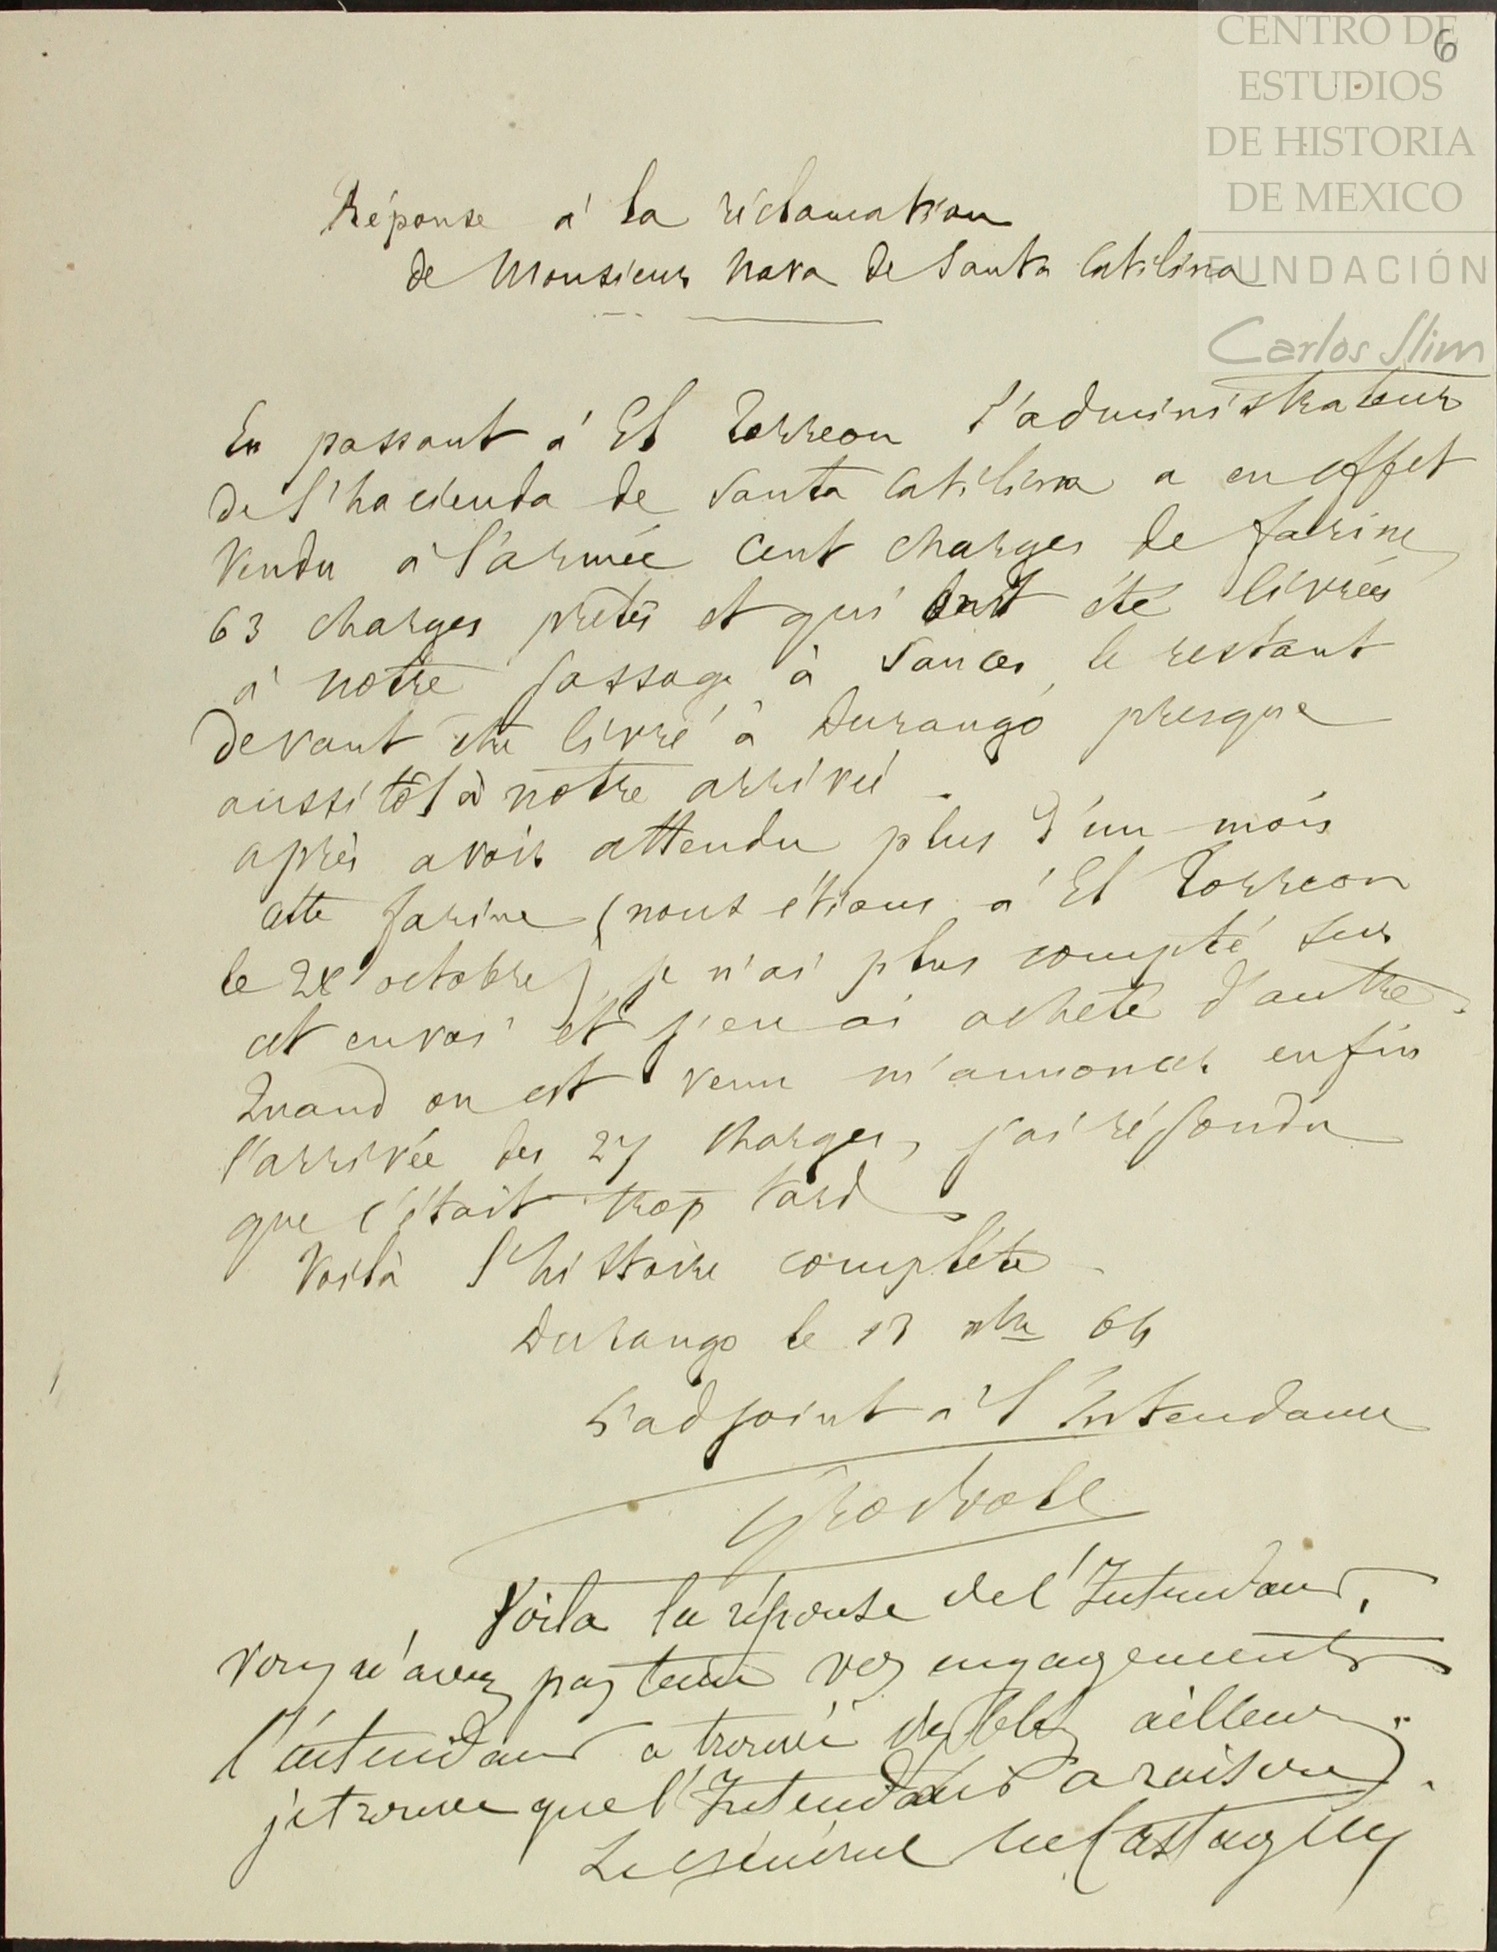 CENTRO DE
ESTUDIOS
DE HISTORIA
DE MEXICO
FUNDACIÓN
Carlos Slim
6
Réponse à la réclamation
de Monsieur Nava de Santa Catilina
En passant à El Torreon l'administrateur
de l'hacienda de Santa Catilina a en effet
vendu à l'armée cent charges de farine,
63 charges prêtes et qui ont été livrées
à notre passage à Sauces, le restant
devant être livré à Durango presque
aussitôt à notre arrivée.
après avoir attendu plus d'un mois
cette farine (nous étions à El Torreon
le 28 octobre) je n'ai plus compté sur
cet envoi et j'en ai acheté d'autre.
Quand on est venu m'annoncer enfin
l'arrivée des 27 charges, j'ai répondu
que c'était trop tard
Voilà l'histoire complète.
Durango le 13 xbre 64
L'adjoint à l'Intendance
Voila la réponse de l'Intendant,
Vous n'avez pas tenu vos engagements
l'intendant a trouvé des blés ailleurs.
je trouve que l'Intendant a raison.
Le Général de Castagny